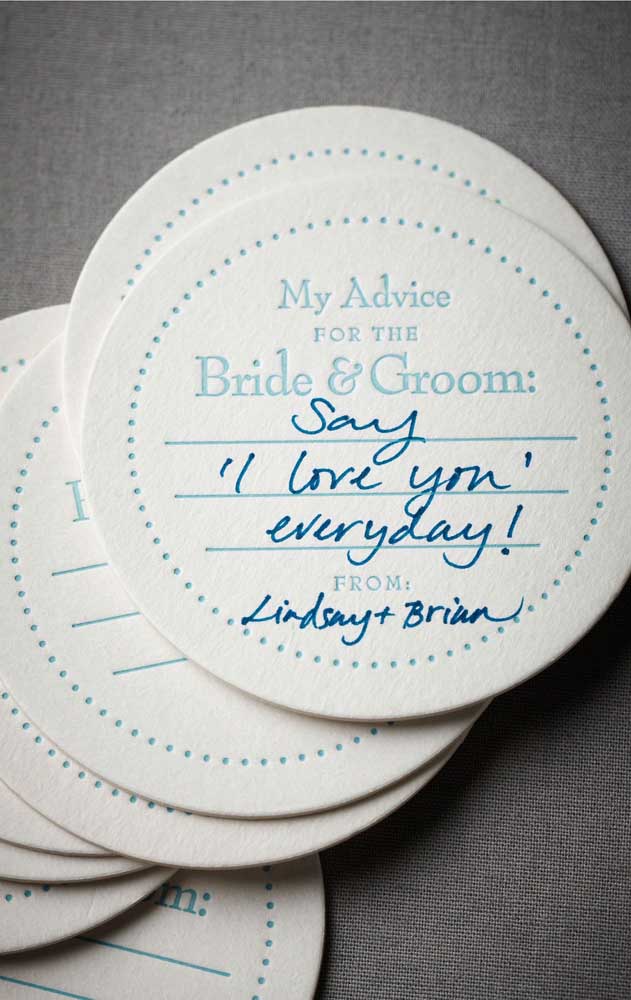 My Advice
FOR THE
Bride & Groom:
Say
'I love you'
everyday!
FROM:
Lindsay + Brian
m: